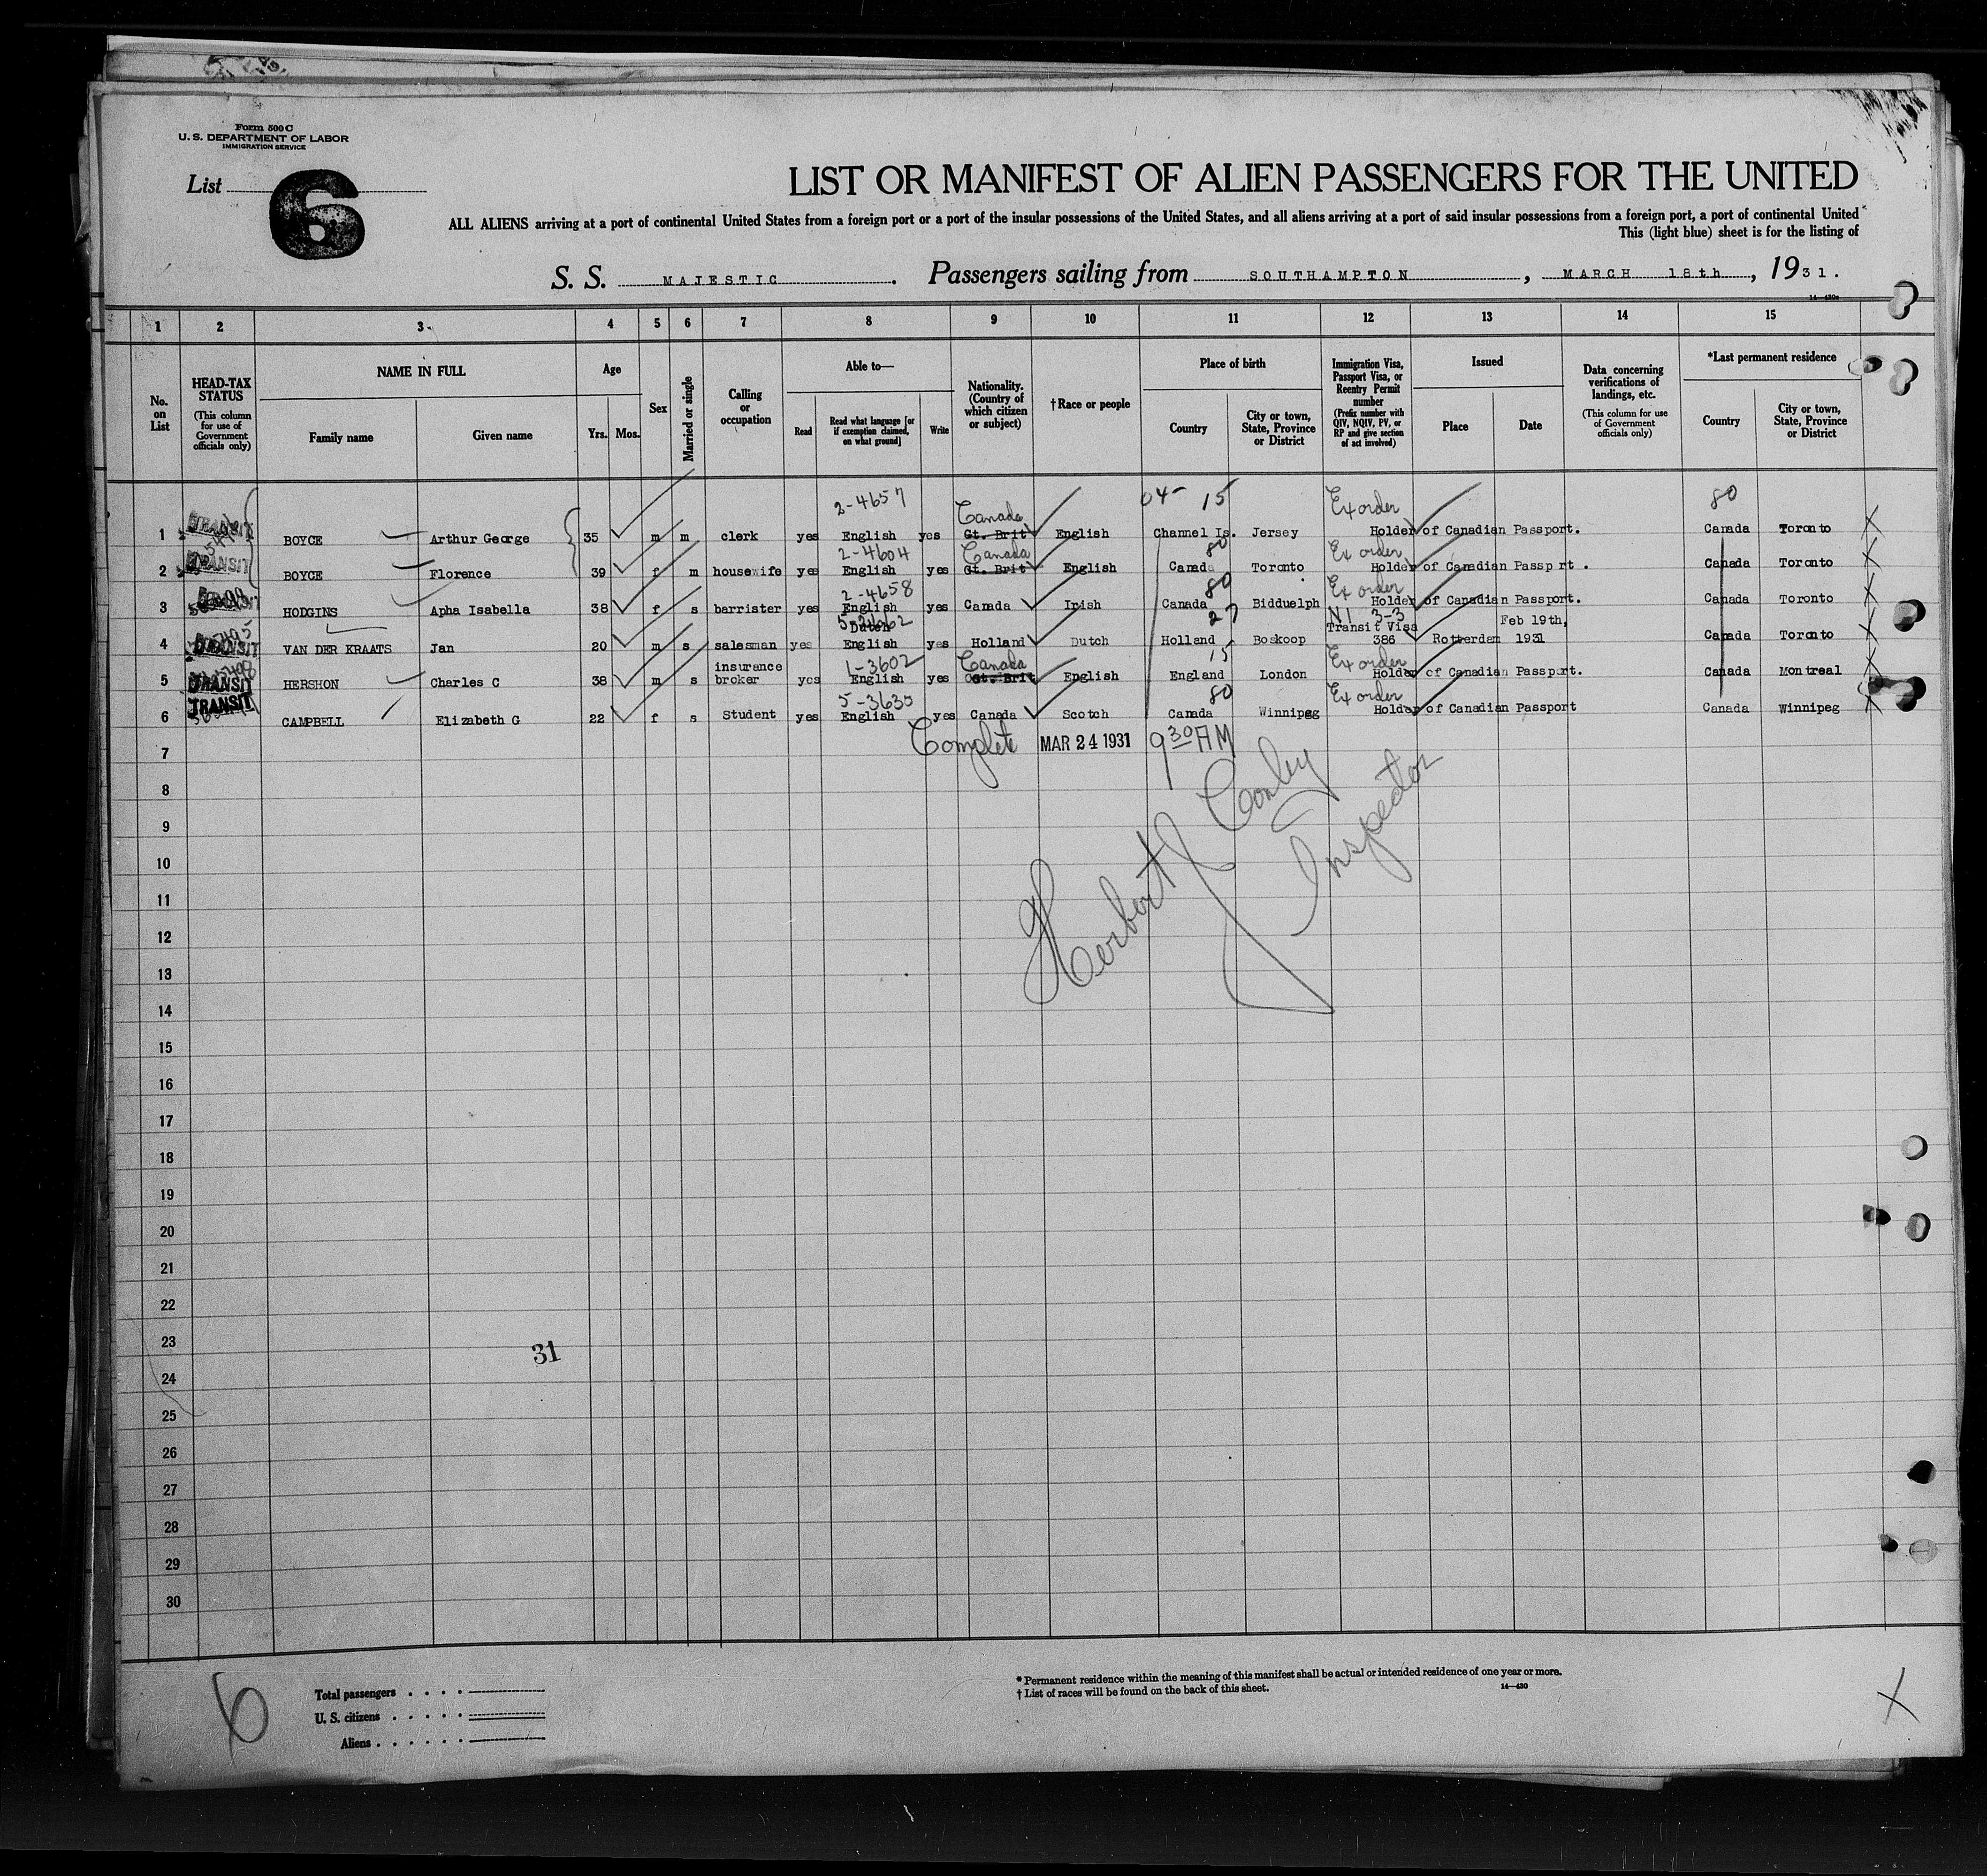 Form 500 C
U. S. DEPARTMENT OF LABOR
IMMIGRATION SERVICE
List 6
LIST OR MANIFEST OF ALIEN PASSENGERS FOR THE UNITED
ALL ALIENS arriving at a port of continental United States from a foreign port or a port of the insular possessions of the United States, and all aliens arriving at a port of said insular possessions from a foreign port, a port of continental United
This (light blue) sheet is for the listing of
S. S. MAJESTIC. Passengers sailing from SOUTHAMPTON, MARCH 18th, 1931.
14—430a
1 2 3 4 5 6 7 8 9 10 11 12 13 14 15
No. on List
HEAD-TAX STATUS (This column for use of Government officials only)
NAME IN FULL
Family name Given name
Age
Yrs. Mos.
Sex
Married or single
Calling or occupation
Able to—
Read
Read what language [or if exemption claimed, on what ground]
Write
Nationality. (Country of which citizen or subject)
†Race or people
Place of birth
Country City or town, State, Province or District
Immigration Visa, Passport Visa, or Reentry Permit number (Prefix number with QIV, NQIV, PV, or RP and give section of act involved)
Issued
Place Date
Data concerning verifications of landings, etc. (This column for use of Government officials only)
*Last permanent residence
Country City or town, State, Province or District
2-4657 Canada 04- 15 Ex order 80
1 TRANSIT BOYCE Arthur George 35 m m clerk yes English yes Gt. Brit English Channel Is. Jersey Holder of Canadian Passport. Canada Toronto X
2-4604 Canada 80 Ex order
2 TRANSIT BOYCE Florence 39 f m housewife yes English yes Gt. Brit English Canada Toronto Holder of Canadian Passp rt . Canada Toronto X
2-4658 80 Ex order
3 HODGINS Apha Isabella 38 f s barrister yes English yes Canada Irish Canada Bidduelph Holder of Canadian Passport. Canada Toronto X
Dutch 27 3-3 Transit Visa Feb 19th,
4 TRANSIT VAN DER KRAATS Jan 20 m s salesman yes English yes Holland Dutch Holland Boskoop 386 Rotterdam 1931 Canada Toronto X
insurance 1-3602 Canada 15 Ex order
5 TRANSIT HERSHON Charles C 38 m s broker yes English yes Gt. Brit English England London Holder of Canadian Passport. Canada Montreal X
TRANSIT 5-3635 80 Ex order
6 CAMPBELL Elizabeth G 22 f s Student yes English yes Canada Scotch Canada Winnipeg Holder of Canadian Passport Canada Winnipeg X
7 Complete MAR 24 1931 9 30 AM
8
9
10
11
12
13
14
Herbert J Conley
Inspector
15
16
17
18
19
20
21
22
23
31
24
25
26
27
28
29
30
6
Total passengers . . . .
U. S. citizens . . . . .
Aliens . . . . . .
* Permanent residence within the meaning of this manifest shall be actual or intended residence of one year or more.
† List of races will be found on the back of this sheet.
14—430
X